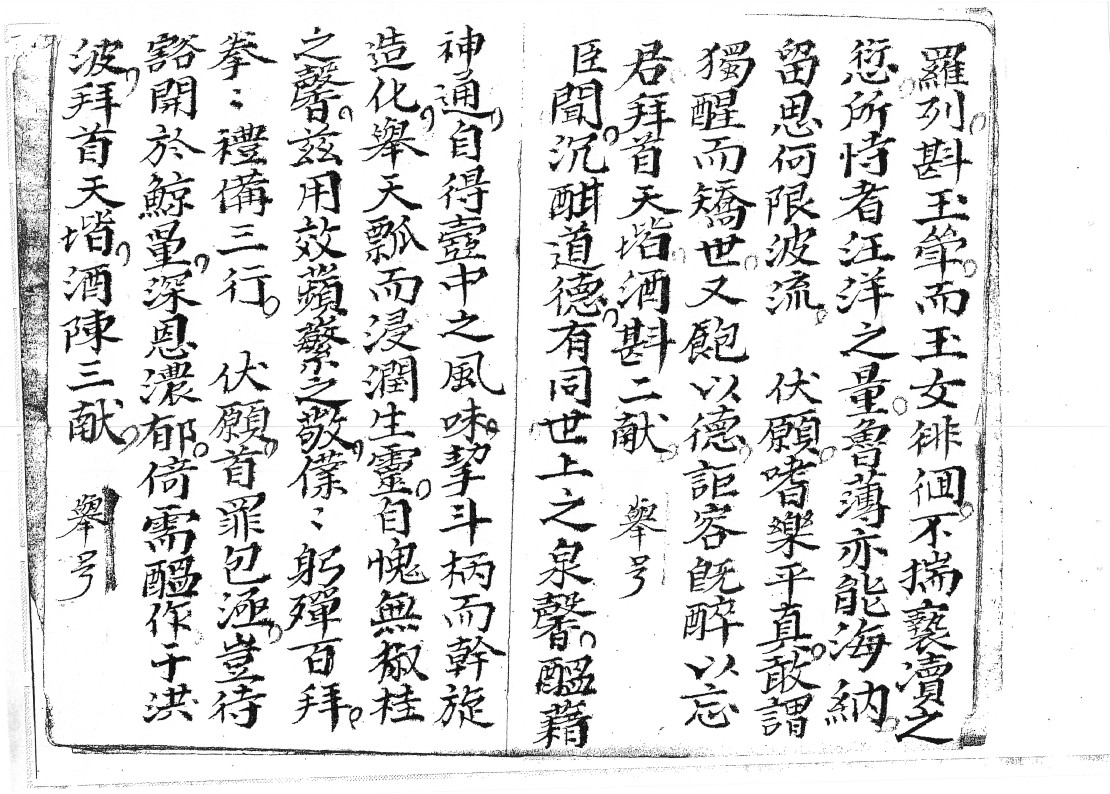 羅列斟玉斝而玉女徘徊不揣褻瀆之
愆所恃者汪洋之量魯薄亦能海納
留思何限波流　伏願嗜樂平真敢謂
獨醒而矯世又飽以德詎容既醉以忘
君拜首天堦酒斟二献　舉号
臣聞沉酣道德有同世上之泉馨醞藉
神通自得壺中之風味挈斗柄而幹旋
造化舉天瓢而浸潤生靈自愧無椒桂
之馨兹用效蘋蘩之敬僕〻躬殫百拜
拳〻禮備三行　伏願首罪包涵豈待
豁開於鯨量深恩濃郁倚需醞作于洪
波拜首天堦酒陳三献　舉号